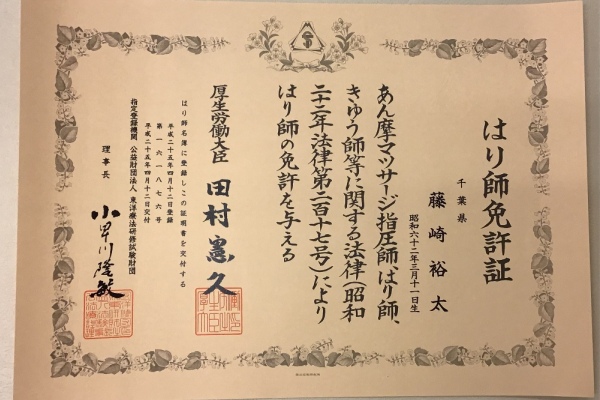 はり師免許証
千葉県
藤崎裕太
昭和六十二年三月十一日生
あん摩マツサージ指圧師、はり師、
きゆう師等に関する法律(昭和
二十二年法律第二百十七号)により
はり師の免許を与える
厚生労働大臣 田村憲久
はり師名簿に登録しこの証明書を交付する
平成二十五年四月十二日登録
第一六一八七六号
平成二十五年四月十二日交付
指定登録機関 公益財団法人 東洋療法研修試験財団
理事長 小早川隆敏